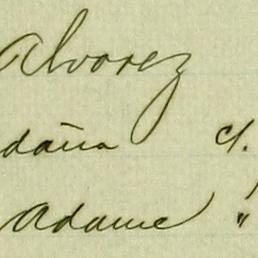 Alvarez
daña c/.
Adame "